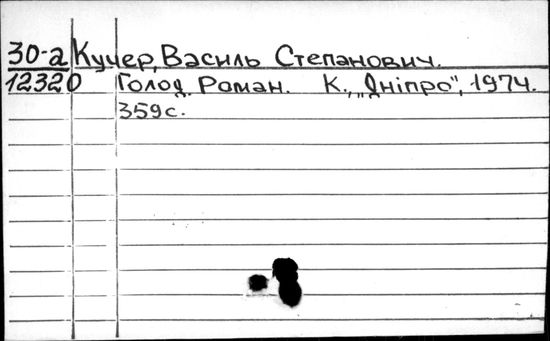 30-а Кучер, Василь Степанович.
12320 Голод. Роман. К., „Дніпро", 1974.
359с.